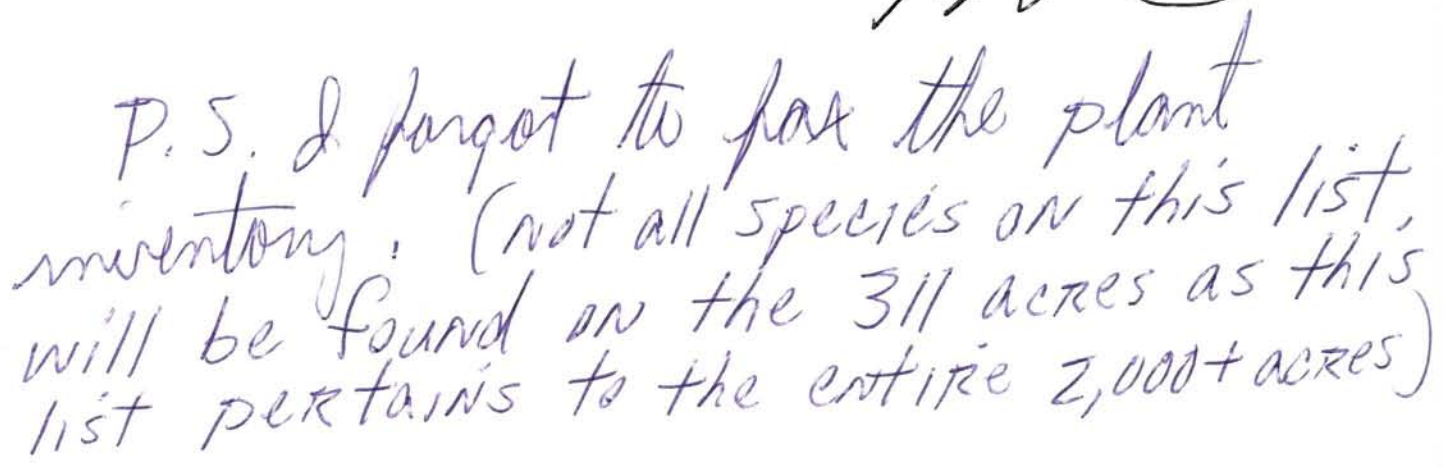 P.S. I forgot to fax the plant
inventory. (not all species on this list,
will be found on the 311 acres as this
list pertains to the entire 2,000+ acres)